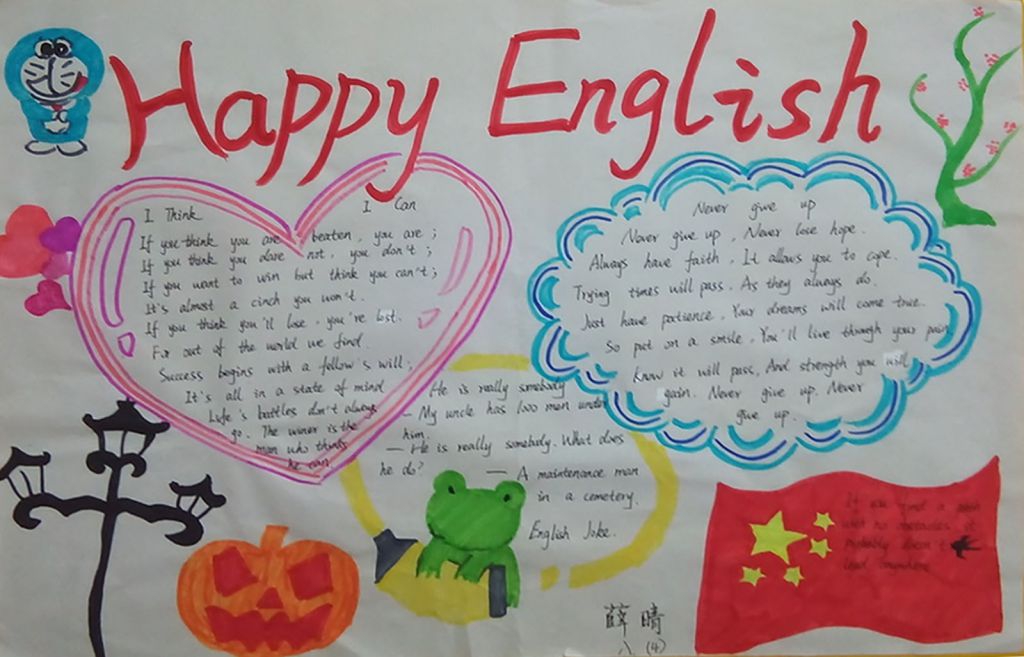 Happy English
I Think I Can
If you think you are beaten, you are;
If you think you dare not, you don't;
If you want to win but think you can't;
It's almost a cinch you won't.
If you think you'll lose, you're lost.
For out of the world we find.
Success begins with a fellow's will;
It's all in a state of mind
Life's battles don't always
go. The winer is the
man who thinks
he can.
Never give up
Never give up, Never lose hope.
Always have faith, It allows you to cope.
Trying times will pass, As they always do.
Just have patience, Your dreams will come true.
So put on a smile, You'll live through your pain.
Know it will pass, And strength you will
gain. Never give up. Never
give up.
He is really somebody
— My uncle has 1000 men under
him.
— He is really somebody. What does
he do?
— A maintenance man
in a cemetery.
English Joke.
If you find a path
with no obstacles, it
Probably doesn't
lead anywhere
薛晴
八 (4)